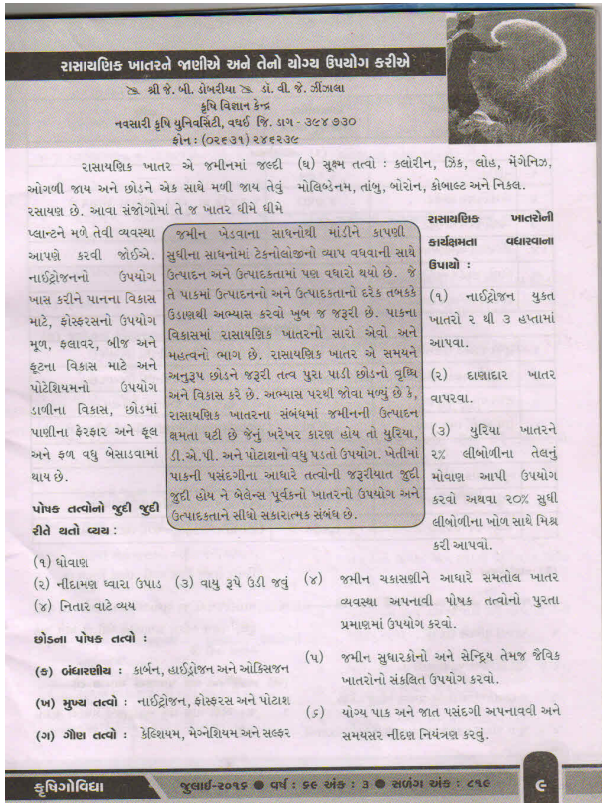 રાસાયણિક ખાતરને જાણીએ અને તેનો યોગ્ય ઉપયોગ કરીએ
શ્રી જે. બી. ડોબરીયા ડૉ. વી. જે. ઝીંઝાલા
કૃષિ વિજ્ઞાન કેન્દ્ર
નવસારી કૃષિ યુનિવર્સિટી, વઘઈ જિ. ડાંગ - ૩૯૪ ૭૩૦
ફોન : (૦૨૬૩૧) ૨૪૬૨૩૯
રાસાયણિક ખાતર એ જમીનમાં જલ્દી
ઓગળી જાય અને છોડને એક સાથે મળી જાય તેવું
રસાયણ છે. આવા સંજોગોમાં તે જ ખાતર ધીમે ધીમે
પ્લાન્ટને મળે તેવી વ્યવસ્થા
આપણે કરવી જોઈએ.
નાઈટ્રોજનનો ઉપયોગ
ખાસ કરીને પાનના વિકાસ
માટે, ફોસ્ફરસનો ઉપયોગ
મૂળ, ફલાવર, બીજ અને
ફૂટના વિકાસ માટે અને
પોટેશિયમનો ઉપયોગ
ડાળીના વિકાસ, છોડમાં
પાણીના ફેરફાર અને ફૂલ
અને ફળ વધુ બેસાડવામાં
થાય છે.
પોષક તત્વોનો જુદી જુદી
રીતે થતો વ્યય :
(૧) ધોવાણ
(૨) નીંદામણ ધ્વારા ઉપાડ (૩) વાયુ રૂપે ઉડી જવું
(૪) નિતાર વાટે વ્યય
છોડના પોષક તત્વો :
(ક) બંધારણીય : કાર્બન, હાઈડ્રોજન અને ઓક્સિજન
(ખ) મુખ્ય તત્વો : નાઈટ્રોજન, ફોસ્ફરસ અને પોટાશ
(ગ) ગૌણ તત્વો : કેલ્શિયમ, મેગ્નેશિયમ અને સલ્ફર
જમીન ખેડવાના સાધનોથી માંડીને કાપણી
સુધીના સાધનોમાં ટેકનોલોજીનો વ્યાપ વધવાની સાથે
ઉત્પાદન અને ઉત્પાદકતામાં પણ વધારો થયો છે. જે
તે પાકમાં ઉત્પાદનનો અને ઉત્પાદકતાનો દરેક તબકકે
ઉંડાણથી અભ્યાસ કરવો ખુબ જ જરૂરી છે. પાકના
વિકાસમાં રાસાયણિક ખાતરનો સારો એવો અને
મહત્વનો ભાગ છે. રાસાયણિક ખાતર એ સમયને
અનુરૂપ છોડને જરૂરી તત્વ પુરા પાડી છોડનો વૃધ્ધિ
અને વિકાસ કરે છે. અભ્યાસ પરથી જોવા મળ્યું છે કે,
રાસાયણિક ખાતરના સંબંધમાં જમીનની ઉત્પાદન
ક્ષમતા ઘટી છે જેનું ખરેખર કારણ હોય તો યુરિયા,
ડી.એ.પી. અને પોટાશનો વધુ પડતો ઉપયોગ. ખેતીમાં
પાકની પસંદગીના આધારે તત્વોની જરૂરીયાત જુદી
જુદી હોય ને બેલેન્સ પૂર્વકનો ખાતરનો ઉપયોગ અને
ઉત્પાદકતાને સીધો સકારાત્મક સંબંધ છે.
(ઘ) સૂક્ષ્મ તત્વો : કલોરીન, ઝિંક, લોહ, મેંગેનિઝ,
મોલિબ્ડેનમ, તાંબુ, બોરોન, કોબાલ્ટ અને નિકલ.
રાસાયણિક ખાતરોની
કાર્યક્ષમતા વધારવાના
ઉપાયો :
(૧) નાઈટ્રોજન યુક્ત
ખાતરો ૨ થી ૩ હપ્તામાં
આપવા.
(૨) દાણાદાર ખાતર
વાપરવા.
(૩) યુરિયા ખાતરને
૨% લીંબોળીના તેલનું
મોવાણ આપી ઉપયોગ
કરવો અથવા ૨૦% સુધી
લીંબોળીના ખોળ સાથે મિશ્ર
કરી આપવો.
(૪) જમીન ચકાસણીને આધારે સમતોલ ખાતર
વ્યવસ્થા અપનાવી પોષક તત્વોનો પુરતા
પ્રમાણમાં ઉપયોગ કરવો.
(૫) જમીન સુધારકોનો અને સેન્દ્રિય તેમજ જૈવિક
ખાતરોનો સંકલિત ઉપયોગ કરવો.
(૬) યોગ્ય પાક અને જાત પસંદગી અપનાવવી અને
સમયસર નીંદણ નિયંત્રણ કરવું.
કૃષિગોવિદ્યા
જુલાઈ-૨૦૧૬ ● વર્ષ : ૬૯ અંક : ૩ ● સળંગ અંક : ૮૧૯
૯